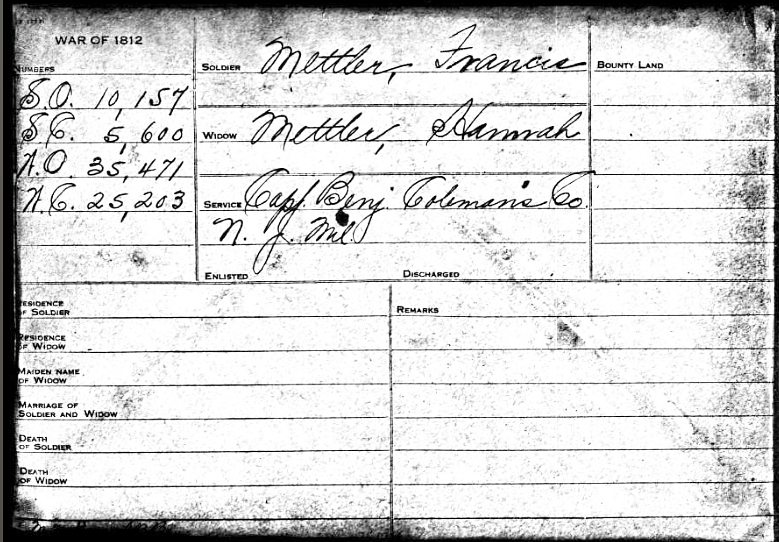 WAR OF 1812
NUMBERS
S.O. 10,157
S.C. 5,600
W.O. 35,471
W.C. 25,203
SOLDIER Mettler, Francis
WIDOW Mettler, Hannah
SERVICE Capt. Benj. Coleman's Co.
N. J. Mil.
ENLISTED DISCHARGED
BOUNTY LAND
RESIDENCE
OF SOLDIER
RESIDENCE
OF WIDOW
MAIDEN NAME
OF WIDOW
MARRIAGE OF
SOLDIER AND WIDOW
DEATH
OF SOLDIER
DEATH
OF WIDOW
REMARKS